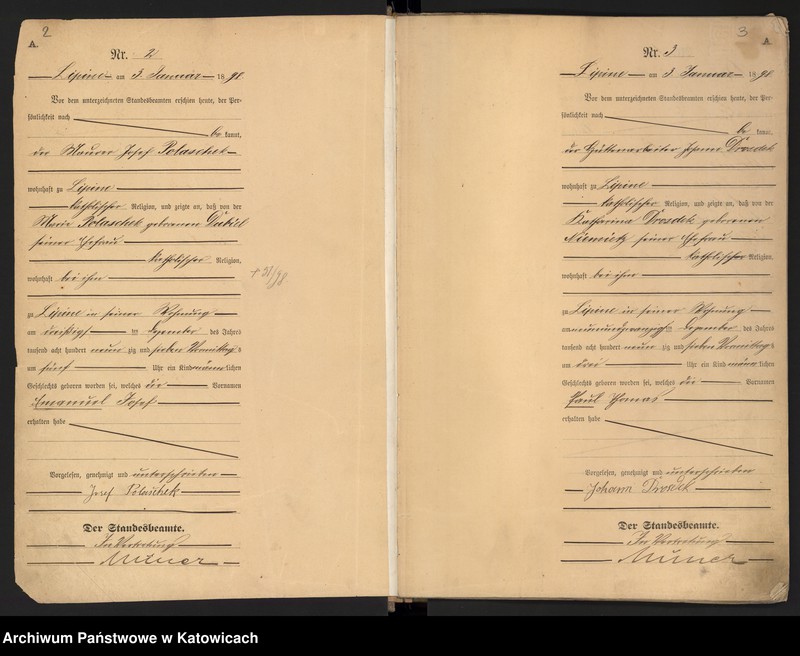 2
A.
Nr. 2
Lipine am 3. Januar 1898.
Vor dem unterzeichneten Standesbeamten erschien heute, der Per-
sönlichkeit nach
be kannt,
der Maurer Josef Polaschek
wohnhaft zu Lipine
katholischer Religion, und zeigte an, daß von der
Marie Polaschek geborenen
seiner Ehefrau
katholischer Religion,
wohnhaft bei ihm
zu Lipine in seiner Wohnung
am dreißigst ten Dezember des Jahres
tausend acht hundert neun zig und sieben Vormittags
um fünf Uhr ein Kind männlichen
Geschlechts geboren worden sei, welches die Vornamen
Emanuel Josef
erhalten habe
Vorgelesen, genehmigt und unterschrieben
Josef Polaschek
Der Standesbeamte.
In Vertretung
3
A.
Nr. 3
Lipine am 3. Januar 1898.
Vor dem unterzeichneten Standesbeamten erschien heute, der Per-
sönlichkeit nach
be kannt,
der Hüttenarbeiter Johann Drosdek
wohnhaft zu Lipine
katholischer Religion, und zeigte an, daß von der
Katharina Drosdek geborenen
Niemietz seiner Ehefrau
katholischer Religion,
wohnhaft bei ihm
zu Lipine in seiner Wohnung
am neunundzwanzigsten Dezember des Jahres
tausend acht hundert neun zig und sieben Vormittags
um drei Uhr ein Kind männlichen
Geschlechts geboren worden sei, welches die Vornamen
Paul Thomas
erhalten habe
Vorgelesen, genehmigt und unterschrieben
Johann Drosdek
Der Standesbeamte.
In Vertretung
Archiwum Państwowe w Katowicach